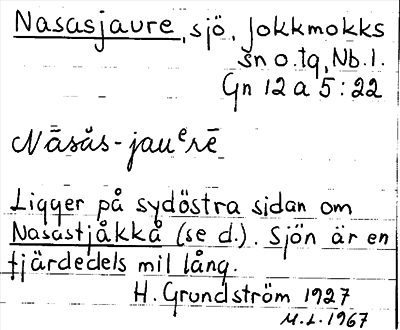 Nasasjaure, sjö, Jokkmokks
sn o. tg, Nb. l.
Gn 12 a 5:22
Nāsăs-jauᵉrē
Ligger på sydöstra sidan om
Nasastjåkkå (se d.). Sjön är en
fjärdedels mil lång.
H. Grundström 1927
M.L. 1967